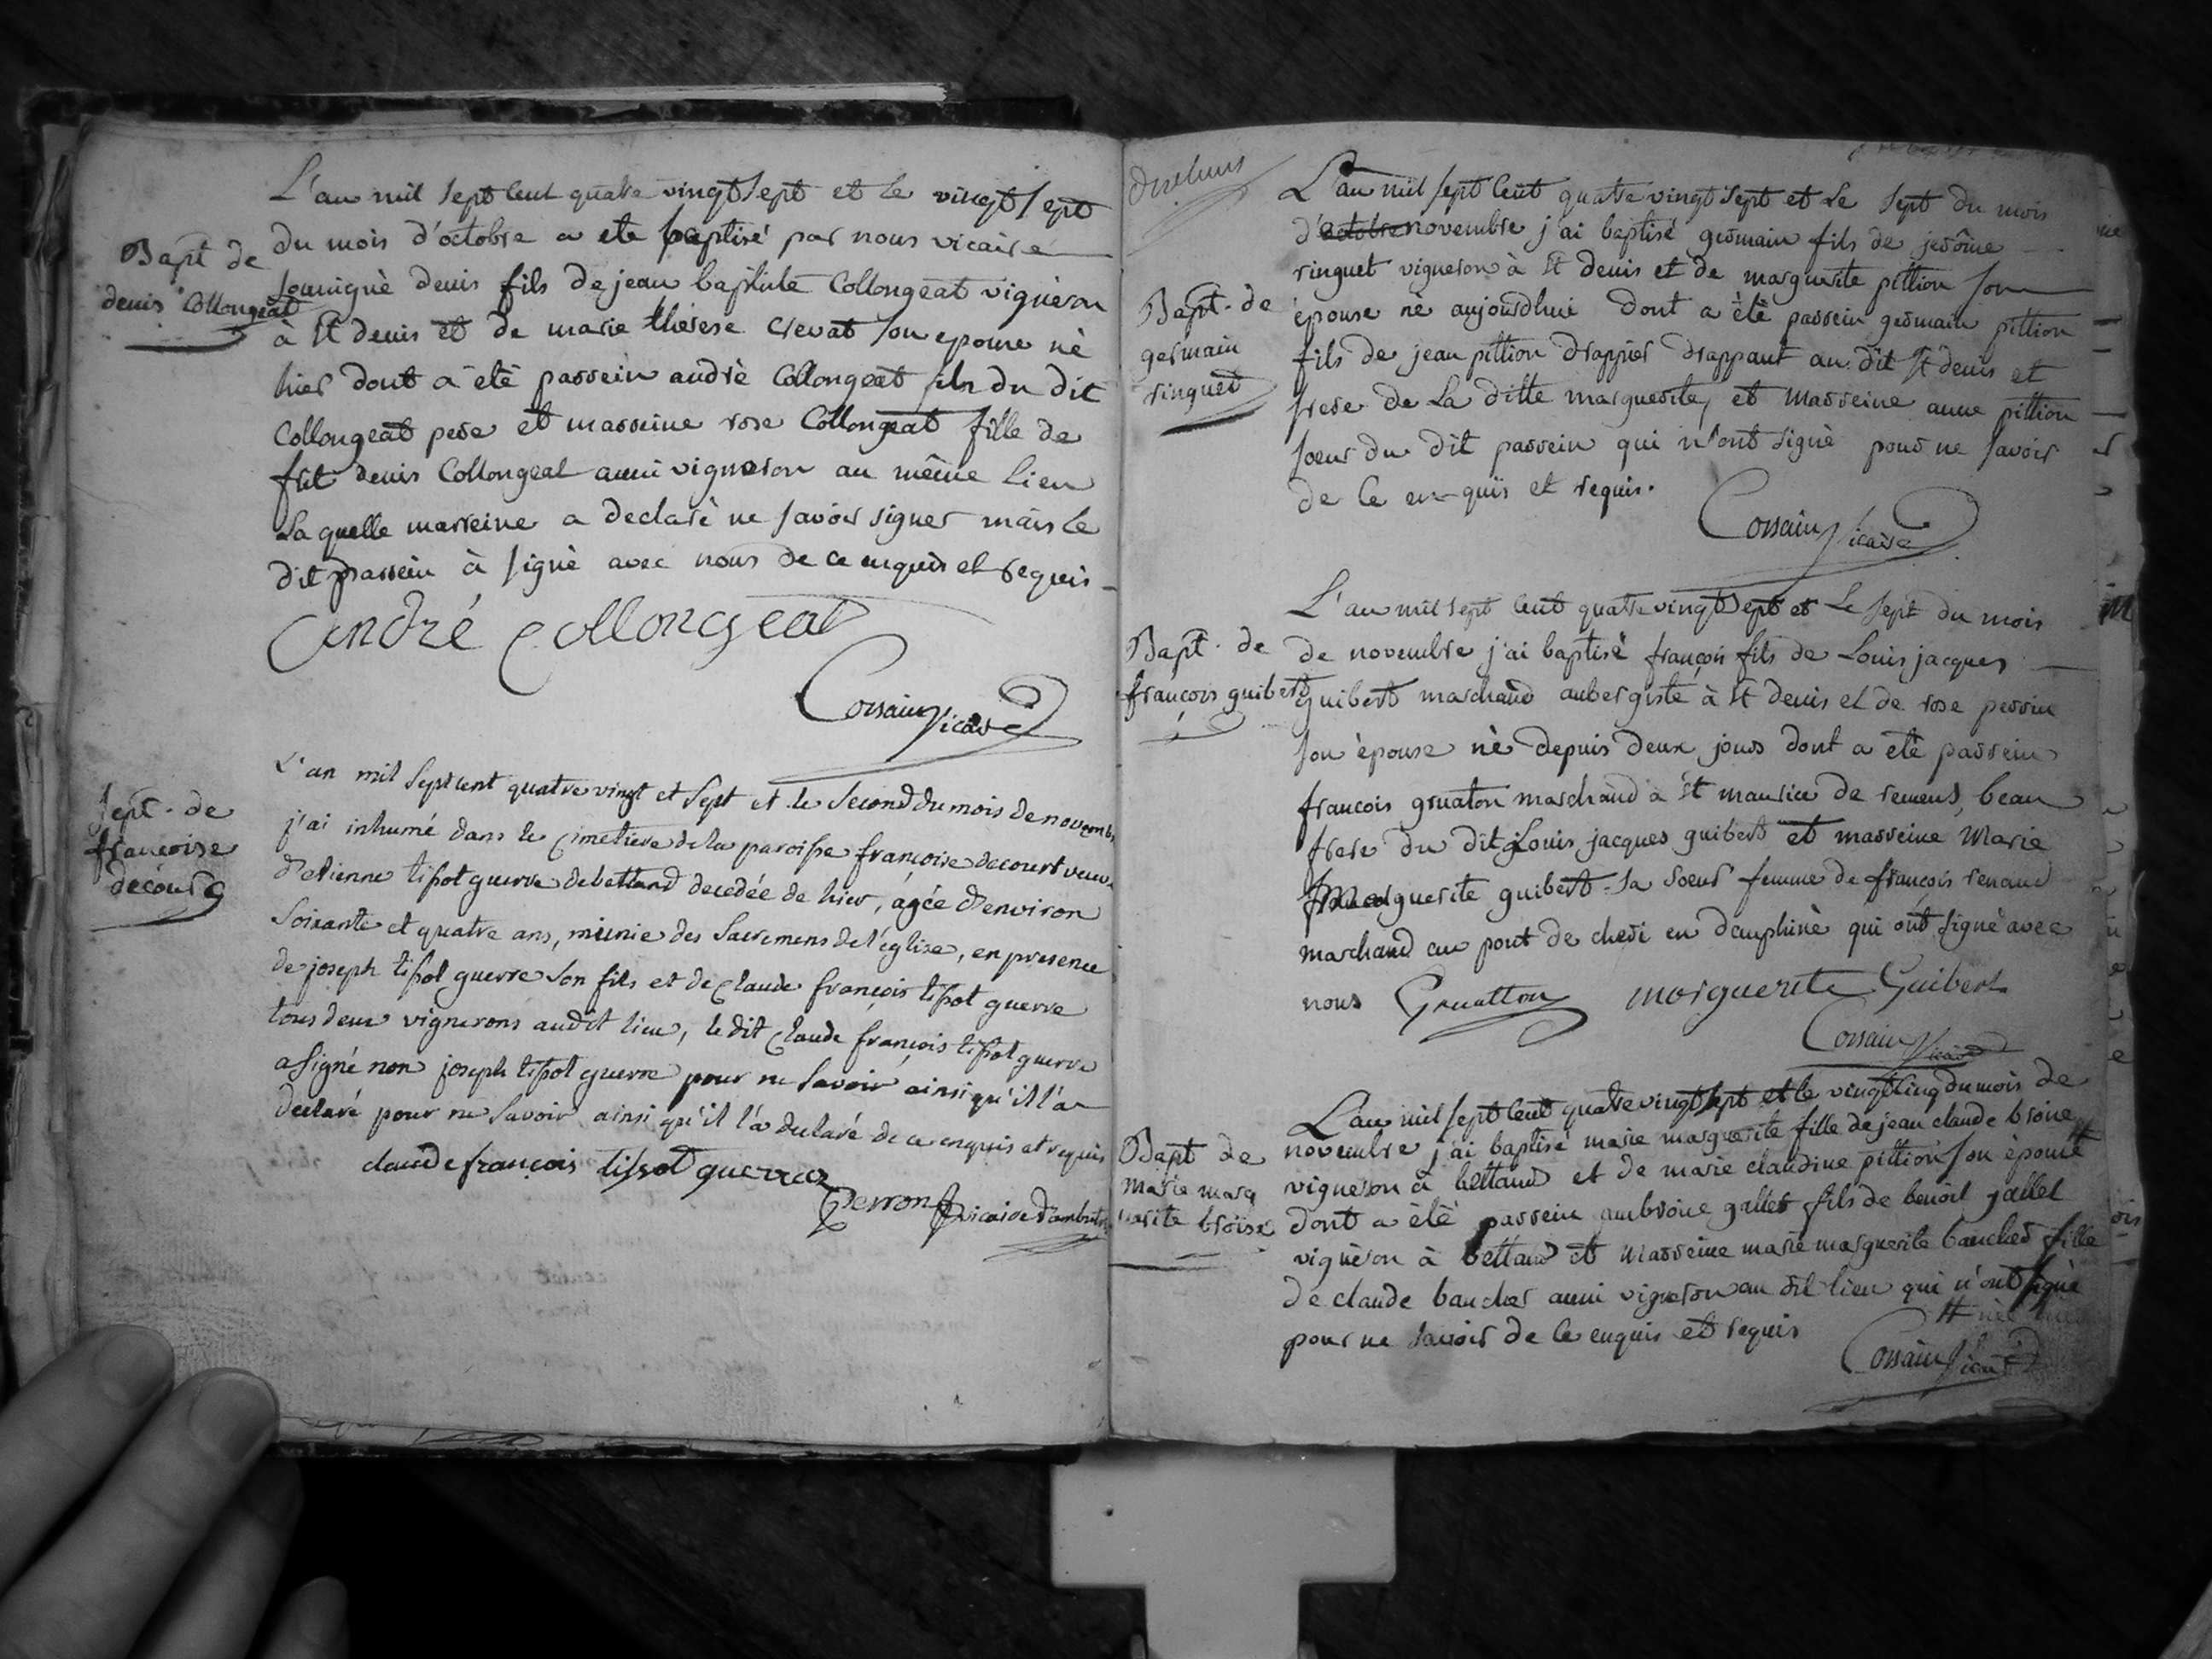 Bapt de
denis Collongeat
L'an mil sept cent quatre vingt sept et le vingt sept
du mois d'octobre a eté baptisé par nous vicaire
soussigné denis fils de jean baptiste Collongeat vigneron
à St denis et de marie therese crevat son epouse né
hier dont a été parrein andré Collongeat fils du dit
Collongeat pere et marreine rose Collongeat fille de
fut denis Collongeat aussi vigneron au même lieu
la quelle marreine a declaré ne savoir signer mais le
dit parrein à signé avec nous de ce enquis et requis
andré collongeat
Corsain Vicaire
Sept. de
francoise
decourt
L'an mil sept cent quatre vingt et sept et le second du mois de novembre
j'ai inhumé dans le cimetiere de la paroisse françoise decourt veuve
d'etienne tissot guerre de bettand decedée de hier, agée d'environ
soixante et quatre ans, munie des sacremens de l'église, en presence
de joseph tissot guerre son fils et de claude françois tissot guerre
tous deux vignerons audit lieu, le dit claude françois tissot guerre
a signé non joseph tissot guerre pour ne savoir ainsi qu'il l'a
declaré pour ne savoir ainsi qu'il l'a declaré de ce enquis et requis
claude françois tissot guerre
perron vicaire d'ambutrix
Bapt. de
germain
ringuet
L'an mil sept cent quatre vingt sept et le sept du mois
d'octobre novembre j'ai baptisé germain fils de jerôme
ringuet vigneron à St denis et de marguerite pittion son
épouse né aujourdhui dont a été parrein germain pittion
fils de jean pittion drappier drappant au dit St denis et
frere de la ditte marguerite, et marreine anne pittion
soeur du dit parrein qui n'ont signé pour ne savoir
de ce enquis et requis.
Corsain Vicaire
Bapt. de
françois guibert
L'an mil sept cent quatre vingt sept et le sept du mois
de novembre j'ai baptisé françois fils de Louis jacques
guibert marchand aubergiste à St denis et de rose perrin
son épouse né depuis deux jours dont a eté parrein
francois gruaton marchand a St maurice de remens, beau
frere du dit Louis jacques guibert et marreine Marie
Marguerite guibert sa soeur femme de françois renaud
marchand au pont de cheri en dauphiné qui ont signé avec
nous Gruatton morguerite Guibert
Corsain Vicaire
Bapt de
marie marg
uerite broise
L'an mil sept cent quatre vingt sept et le vingt cinq du mois de
novembre j'ai baptisé marie marguerite fille de jean claude broise
vigneron à bettand et de marie claudine pittion son épouse #
dont a été parrein ambroise gallet fils de benoit gallet
vigneron à bettand et marreine marie marguerite baucher fille
de claude baucher aussi vigneron au dit lieu qui n'ont signé
pour ne savoir de ce enquis et requis
# née
Corsain Vicaire